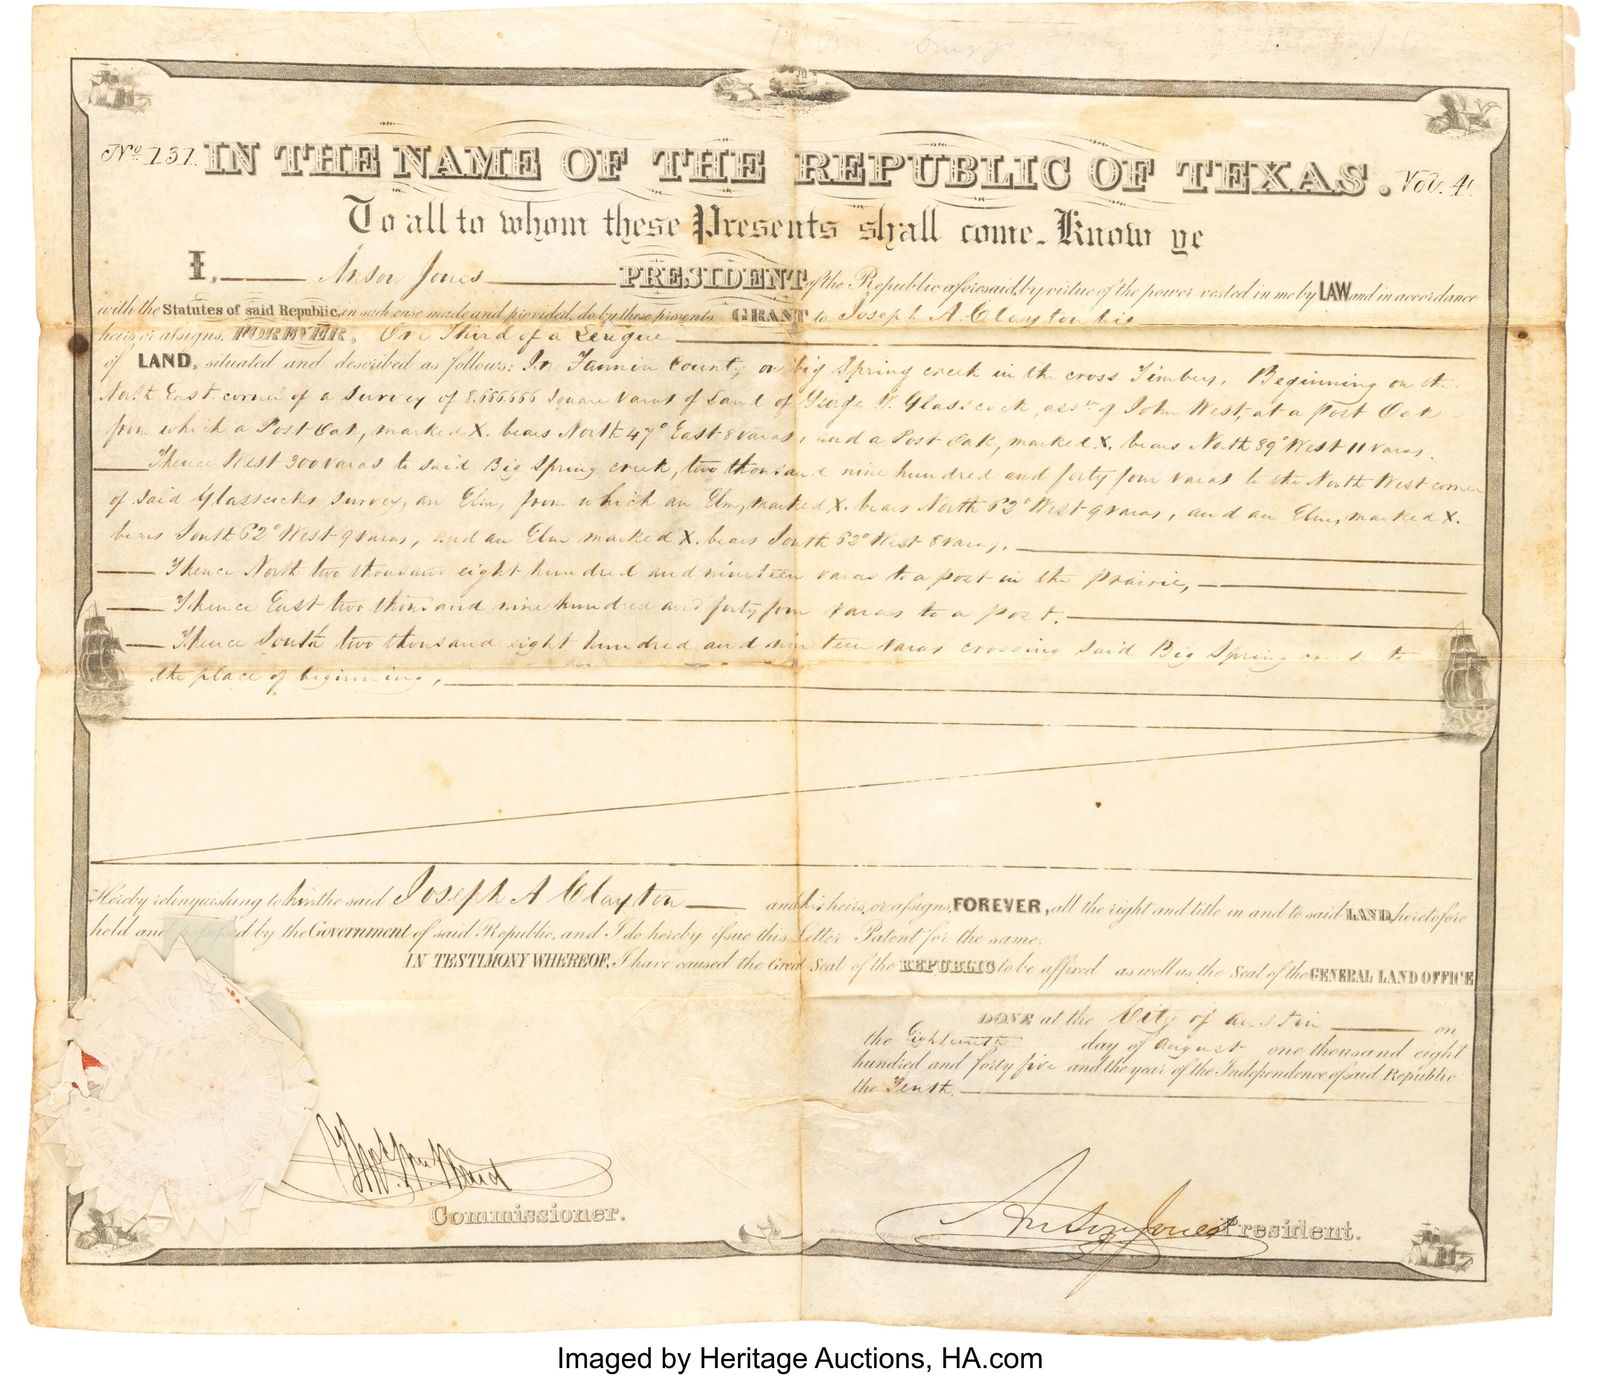 No. 131. IN THE NAME OF THE REPUBLIC OF TEXAS. Vol. 4.
To all to whom these Presents shall come, Know ye
I, Anson Jones PRESIDENT of the Republic aforesaid, by virtue of the power vested in me by LAW and in accordance
with the Statutes of said Republic, in such case made and provided, do by these presents GRANT to Joseph A Clayton his
heirs or assigns FOREVER, One Third of a League
of LAND, situated and described as follows: In Fannin County on big Spring creek in the cross Timbers. Beginning on the
North East corner of a Survey of 8.666.666 Square varas of Land of George W. Glasscock, assee. of John West, at a post Oak
from which a Post Oak, marked X. bears North 47° East 8 varas, and a Post Oak, marked X. bears North 89° West 11 varas.
Thence West 300 varas to said Big Spring creek, two thousand nine hundred and forty four varas to the North West corner
of said Glasscocks survey, an Elm, from which an Elm, marked X. bears North 62° West 9 varas, and an Elm, marked X.
bears South 62° West 9 varas, and an Elm marked X. bears South 62° West 8 varas.
Thence North two thousand eight hundred and nineteen varas to a post in the prairie,
Thence East two thousand nine hundred and forty four varas to a post.
Thence South two thousand eight hundred and nineteen varas crossing said Big Spring to
the place of beginning,
Hereby relinquishing to him the said Joseph A Clayton and his heirs, or assigns, FOREVER, all the right and title in and to said LAND, heretofore
held and possessed by the Government of said Republic, and I do hereby issue this Letter Patent for the same.
IN TESTIMONY WHEREOF, I have caused the Great Seal of the REPUBLIC to be affixed as well as the Seal of the GENERAL LAND OFFICE
DONE at the City of Austin on
the Eighteenth day of August one thousand eight
hundred and forty five and the year of the Independence of said Republic
the Tenth.
Thos. Wm. Ward
Commissioner.
Anson Jones President.
Imaged by Heritage Auctions, HA.com